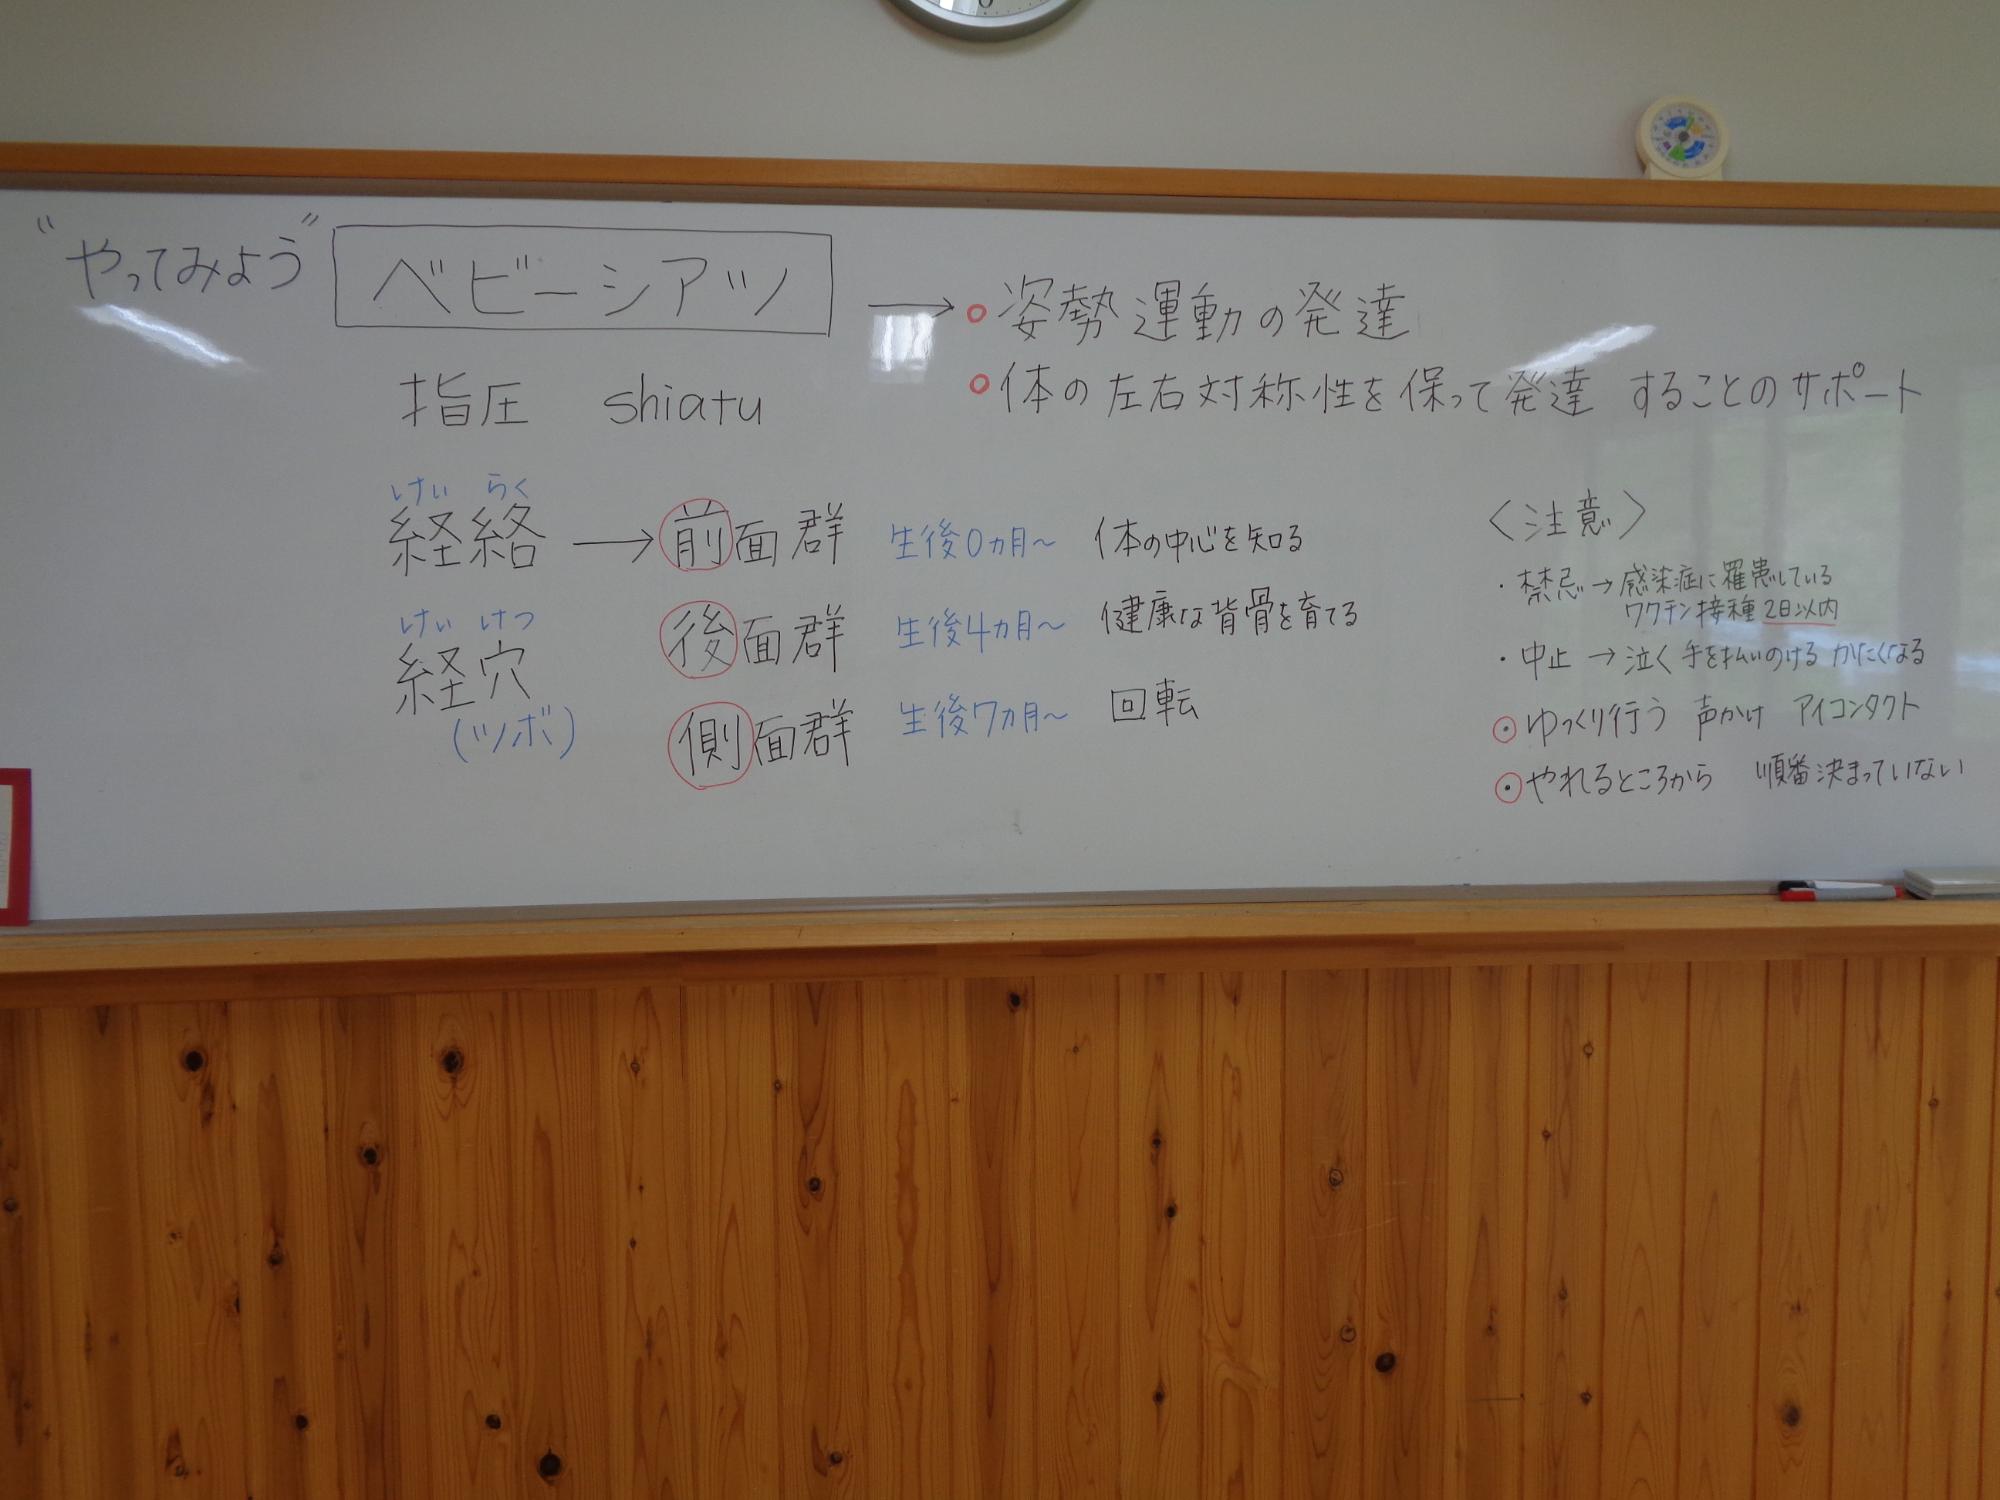 "やってみよう" ベビーシアツ → ○ 姿勢運動の発達
○ 体の左右対称性を保って発達 することのサポート
指圧 shiatu
けい らく
経絡 → 前面群 生後0ヵ月～ 体の中心を知る
けい けつ
経穴 後面群 生後4ヵ月～ 健康な背骨を育てる
(ツボ)
側面群 生後7ヵ月～ 回転
〈注意〉
・禁忌 → 感染症に羅患している
ワクチン接種 2日以内
・中止 → 泣く 手を払いのける かたくなる
・ゆっくり行う 声かけ アイコンタクト
・やれるところから 順番決まっていない